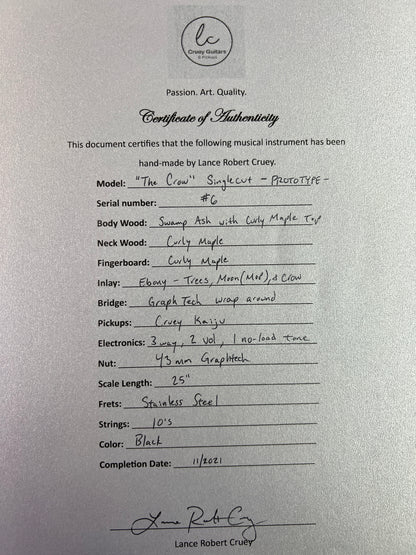 lc
Cruey Guitars
& Pickups
Passion. Art. Quality.
Certificate of Authenticity
This document certifies that the following musical instrument has been
hand-made by Lance Robert Cruey.
Model: "The Crow" Singlecut - PROTOTYPE -
Serial number: #6
Body Wood: Swamp Ash with Curly Maple Top
Neck Wood: Curly Maple
Fingerboard: Curly Maple
Inlay: Ebony - Trees, Moon (MOP), & Crow
Bridge: Graph Tech wrap around
Pickups: Cruey Kaiju
Electronics: 3 way, 2 vol, 1 no-load tone
Nut: 43mm Graphtech
Scale Length: 25"
Frets: Stainless Steel
Strings: 10's
Color: Black
Completion Date: 11/2021
Lance Robert Cruey